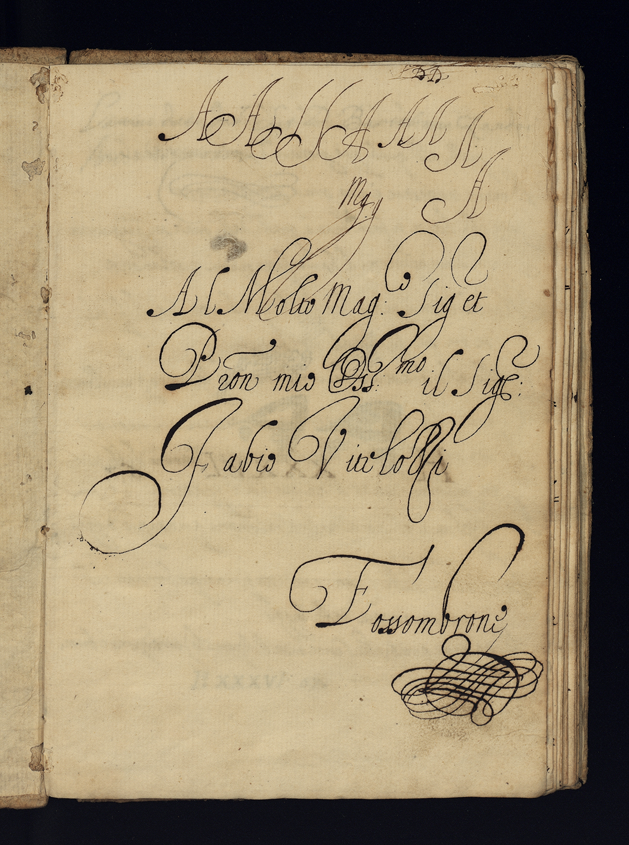 A A A A A A A
Mg
A
Al Molto Mag.co Sig et
Pron mio Oss.mo il Sig.
Fabio Vitelozzi
Fossombrone